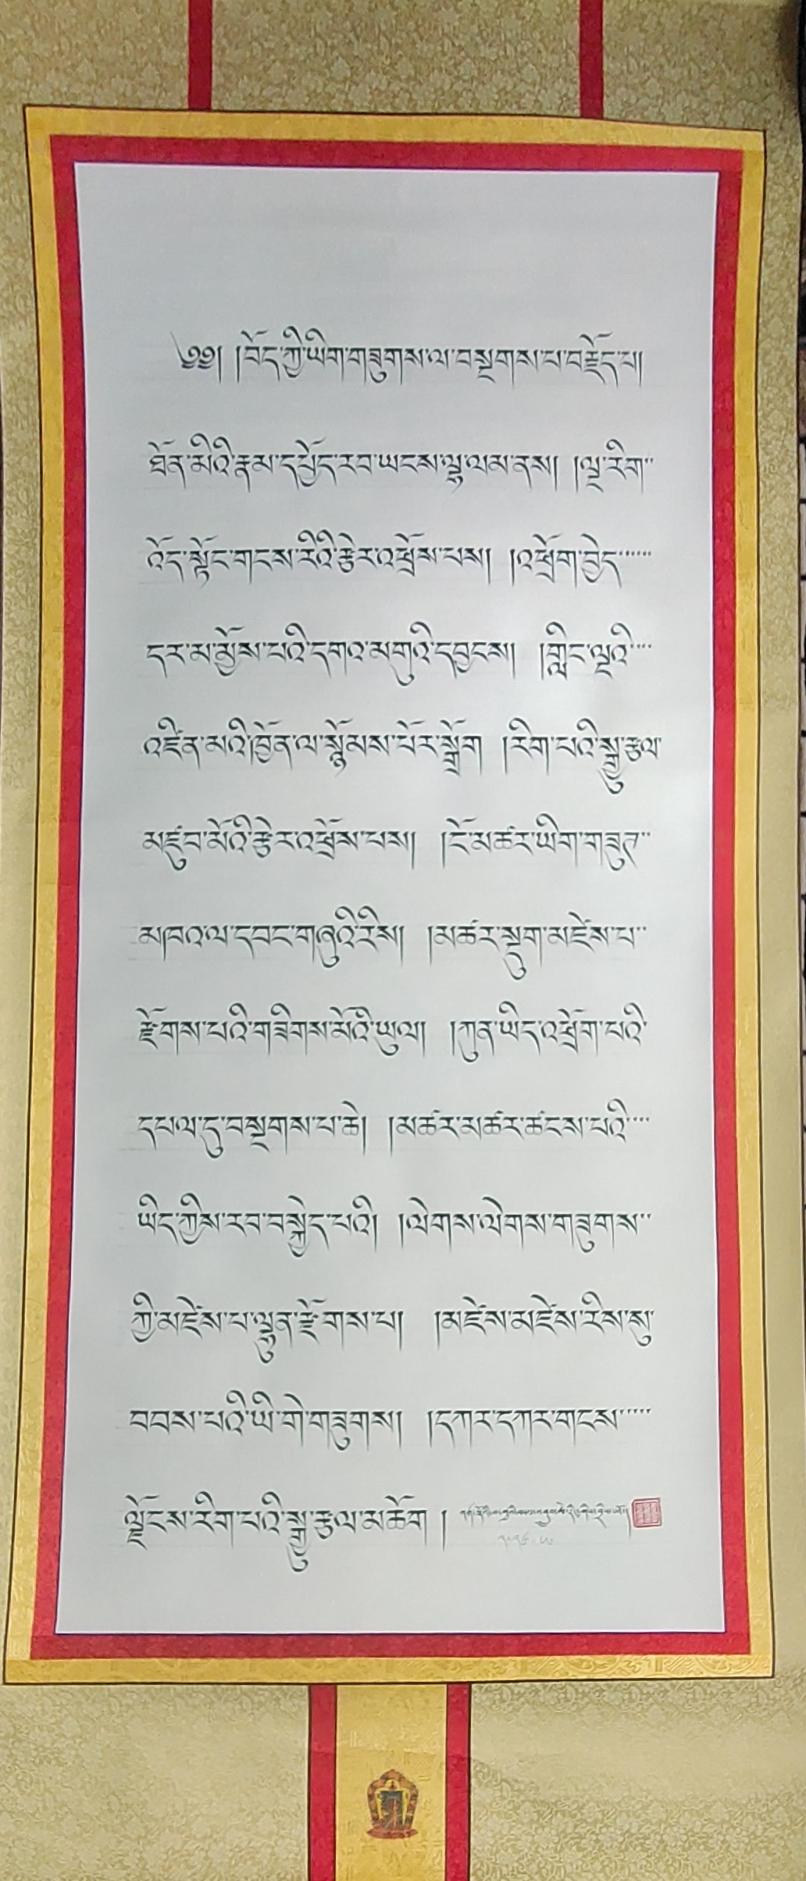 ༄༅། །བོད་ཀྱི་ཡིག་གཟུགས་ལ་བསྔགས་པ་བརྗོད་པ།
ཐོན་མིའི་རྣམ་དཔྱོད་རབ་ཡངས་ལྷ་ལམ་ནས། །ལྔ་རིག་
འོད་སྟོང་གངས་རིའི་རྩེར་འཕྲོས་པས། །འཕྲོག་བྱེད་
དར་མ་མྱོས་པའི་དགའ་མགུའི་དབྱངས། །གླིང་ལྔའི་
འཛིན་མའི་ཁྱོན་ལ་སྙོམས་པོར་སྒྲོག །རིག་པའི་སྒྱུ་རྩལ་
མཛུབ་མོའི་རྩེར་འཕྲོས་པས། །ངོ་མཚར་ཡིག་གཟུ
མཁའ་ལ་དབང་གཞུའི་རིས། །མཚར་སྡུག་མཛེས་པ་
རྫོགས་པའི་གཟིགས་མོའི་ཡུལ། །ཀུན་ཡིད་འཕྲོག་པའི་
དཔལ་དུ་བསྔགས་པ་ཆེ། །མཚར་མཚར་ཚངས་པའི་
ཡིད་ཀྱིས་རབ་བསྐྱེད་པའི། །ལེགས་ལེགས་གཟུགས་
ཀྱི་མཛེས་པ་ལྷུན་རྫོགས་པ། །མཛེས་མཛེས་རིས་སུ་
བབས་པའི་ཡི་གེ་གཟུགས། །དཀར་དཀར་གངས་
ལྗོངས་རིག་པའི་སྒྱུ་རྩལ་མཆོག །